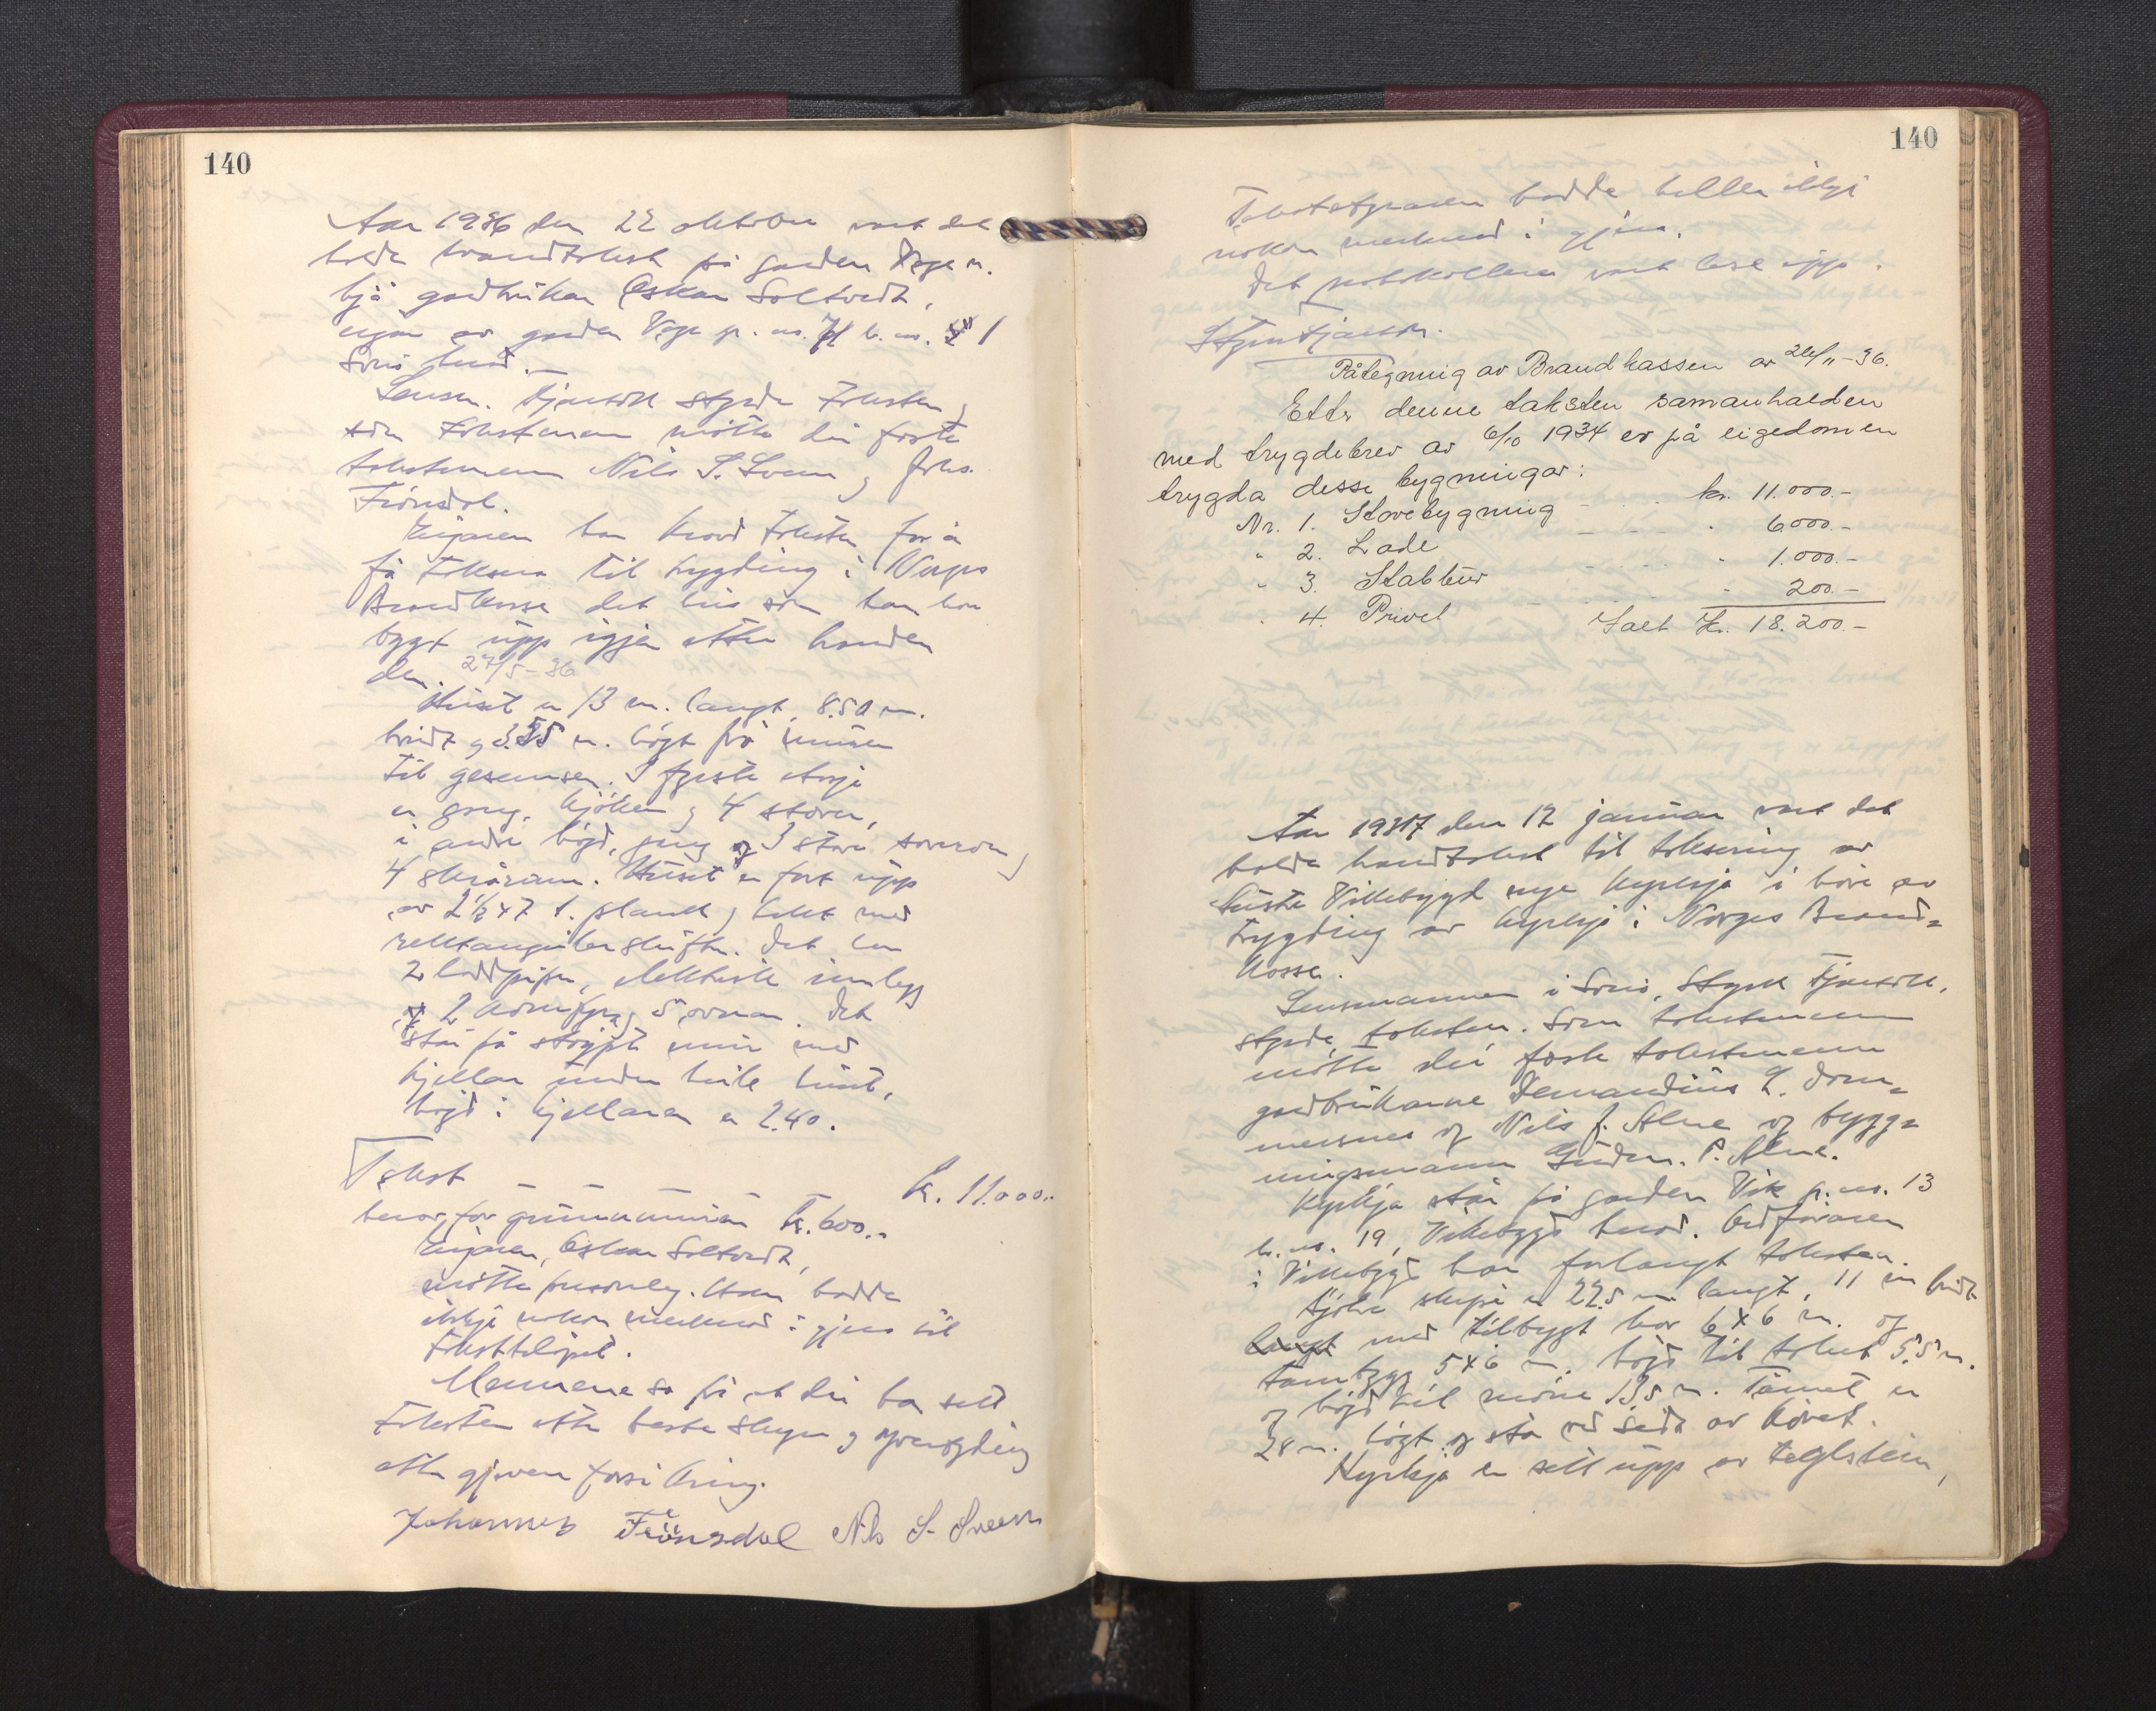 140
Aar 1936 den 22 oktober vart det
halde brandtakst på garden Vage m.
hjå gardbrukar Oskar Soltvedt,
eigar av garden Vage g. no. 71 b. no. 1
herad.
Lensm. Fjæreide styrde taksten og
som takstmenn møtte dei faste
takstmenn Nils S. Sveen og Johs.
Frönsdal.
Eigaren har kravd taksten for å
få taksera til trygding i Norges
Brandkasse det hus som han har
bygt upp igjen etter branden
den 27/5-36
Huset er 13 m. langt, 8.50 m.
breidt og 3.55 m. högt frå muren
til gesemsen. I fyrste høgd
er gang, kjöken og 4 stover,
i andre högd, gang og 3 store soverom og
4 skråram. Huset er fört upp
av 2½ x 7 t. plank og tekt med
rektangulær skifter. Det har
2 loddpipor, elektrisk innlegg
og 2 komfyr og 5 omnar. Det
står på stöypt mur med
kjellar under heile huset,
högd i kjellaren er 2.40.
Takst — — — kr. 11.000..
herav for grunnmuren kr. 600..
Eigaren, Oskar Soltvedt,
møtte personleg. Han hadde
ikkje nokon merknad i gjera til
takstbeløpet.
Mennene sa på at dei har sett
taksten etter beste skyn og overtyding
etter gjeven forsikring.
Johannes Frönsdal Nils S. Sveen
140
Takststyraren hadde heller ikkje
nokon merknad i gjera.
Det protokollera vart lese upp.
Styrk Fjæreide.
Påtegning av Brandkassen av 26/11-36.
Etter denne taksten samanhalden
med trygdebrev av 6/10 1934 er på eigedomen
trygda desse bygningar:
Nr. 1. Stovebygning - - - kr. 11.000.-
" 2. Lade - - - - " 6000.-
" 3. Stabbur - - - " 1.000.-
" 4. Privet - - - " 200.-
Salt Kr. 18.200.-
Aar 1937 den 12 januar vart det
halde brandtakst til taksering av
Vikebygd nye kyrkja i høve av
trygding av kyrkja i Norges Brand=
kasse.
Lensmannen i Styrk Fjæreide,
styrde taksten. Som takstmenn
møtte dei faste takstmenn
gardbrukarane L. Dom=
mersnes og Nils J. Alne og bygg=
ningsmann Gudm. P. Alne.
Kyrkja står på garden Vik g. no. 13
b. no. 19, Vikebygd herad. Ordføraren
i Vikebygd har forlangt taksten.
Sjølve skipi er 22.5 m. langt, 11 m breidt
langt med tilbygt kor 6 x 6 m. og
5 x 6 m. högd til taket 5.5 m.
og högd til møne 13.5 m. Tårnet er
28 m. högt og står ved sida av koret.
Kyrkja er sett upp av teglstein,